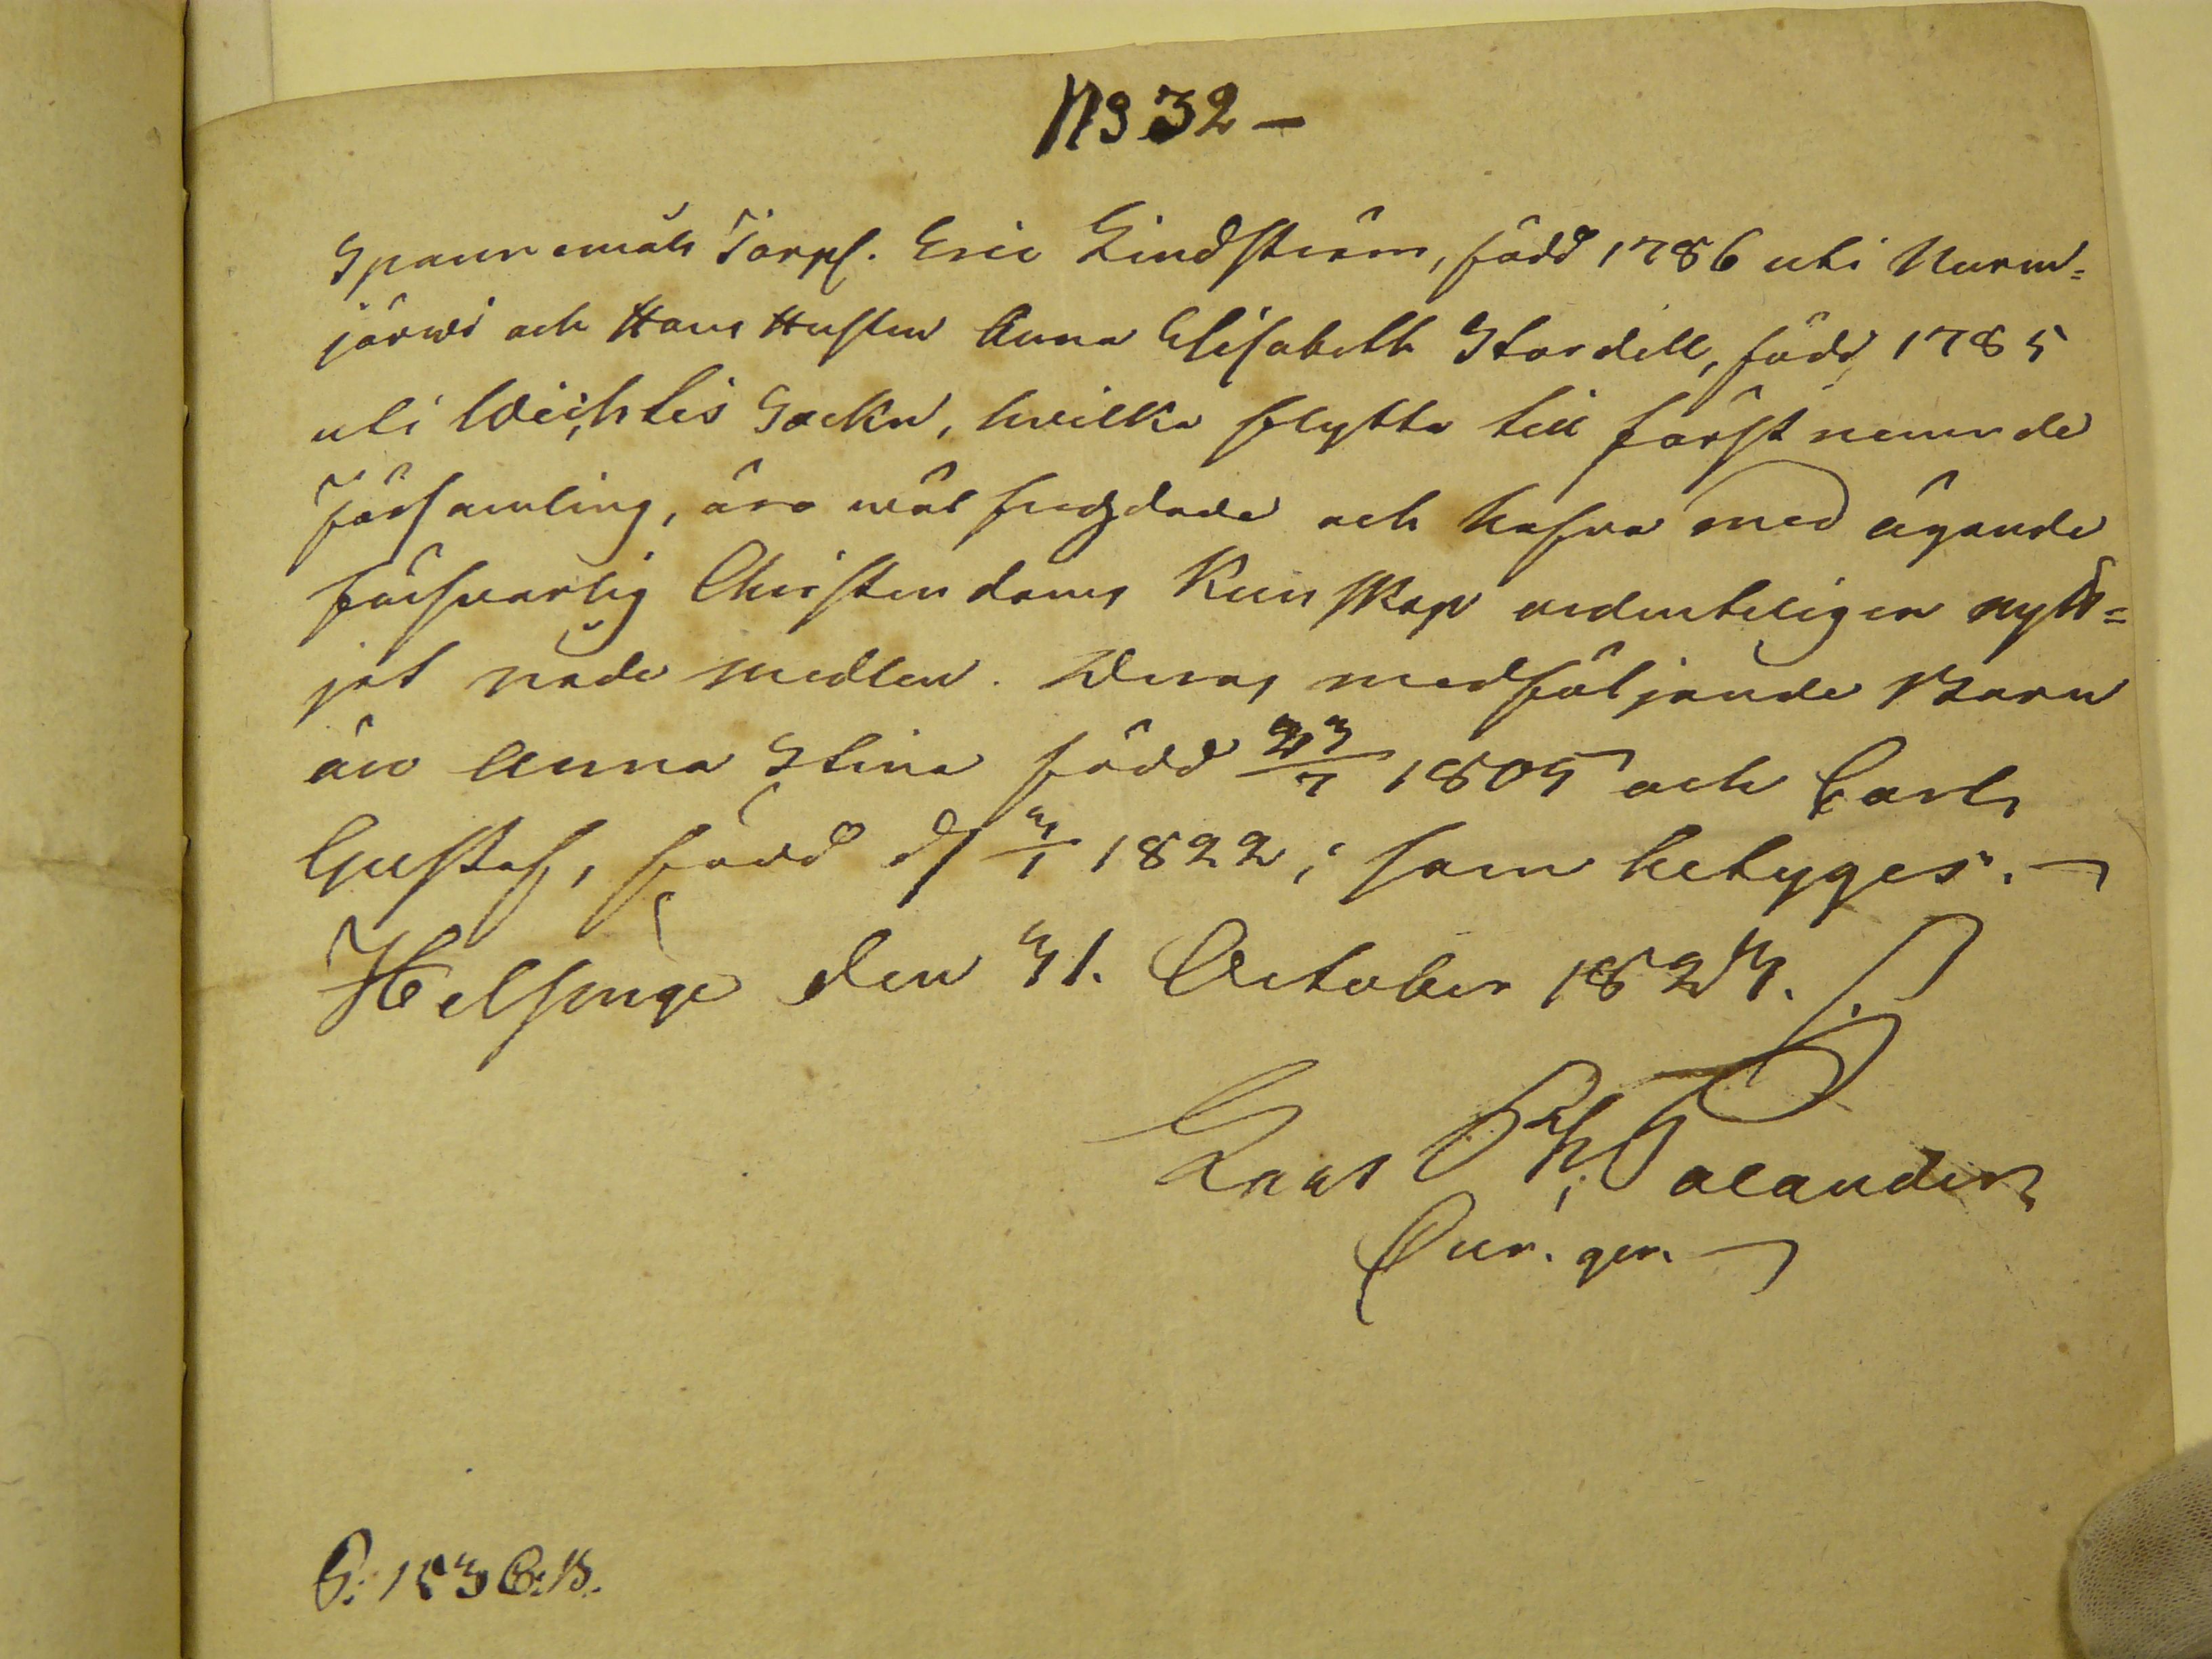 No 32 –
Spannemäls Torp. Eric Lindström, född 1786 uti Nurm=
järwi och Hans Hustru Anna Elisabeth Stordell, född 1785
uti Wichtis Sockn, hvilka flytta till först nemnde
Församling, äro wäl frägdade och hafva med ägande
försvarlig Christendoms Kunskap ordenteligen nytt=
jat nåde medlen. Deras medföljande Barn
äro Anna Stina född 23/7 1805 och Carl
Gustaf, född d 3/1 1822; som betyges.
Helsinge den 31. October 1823.
Lars Palander
Cur. ger.